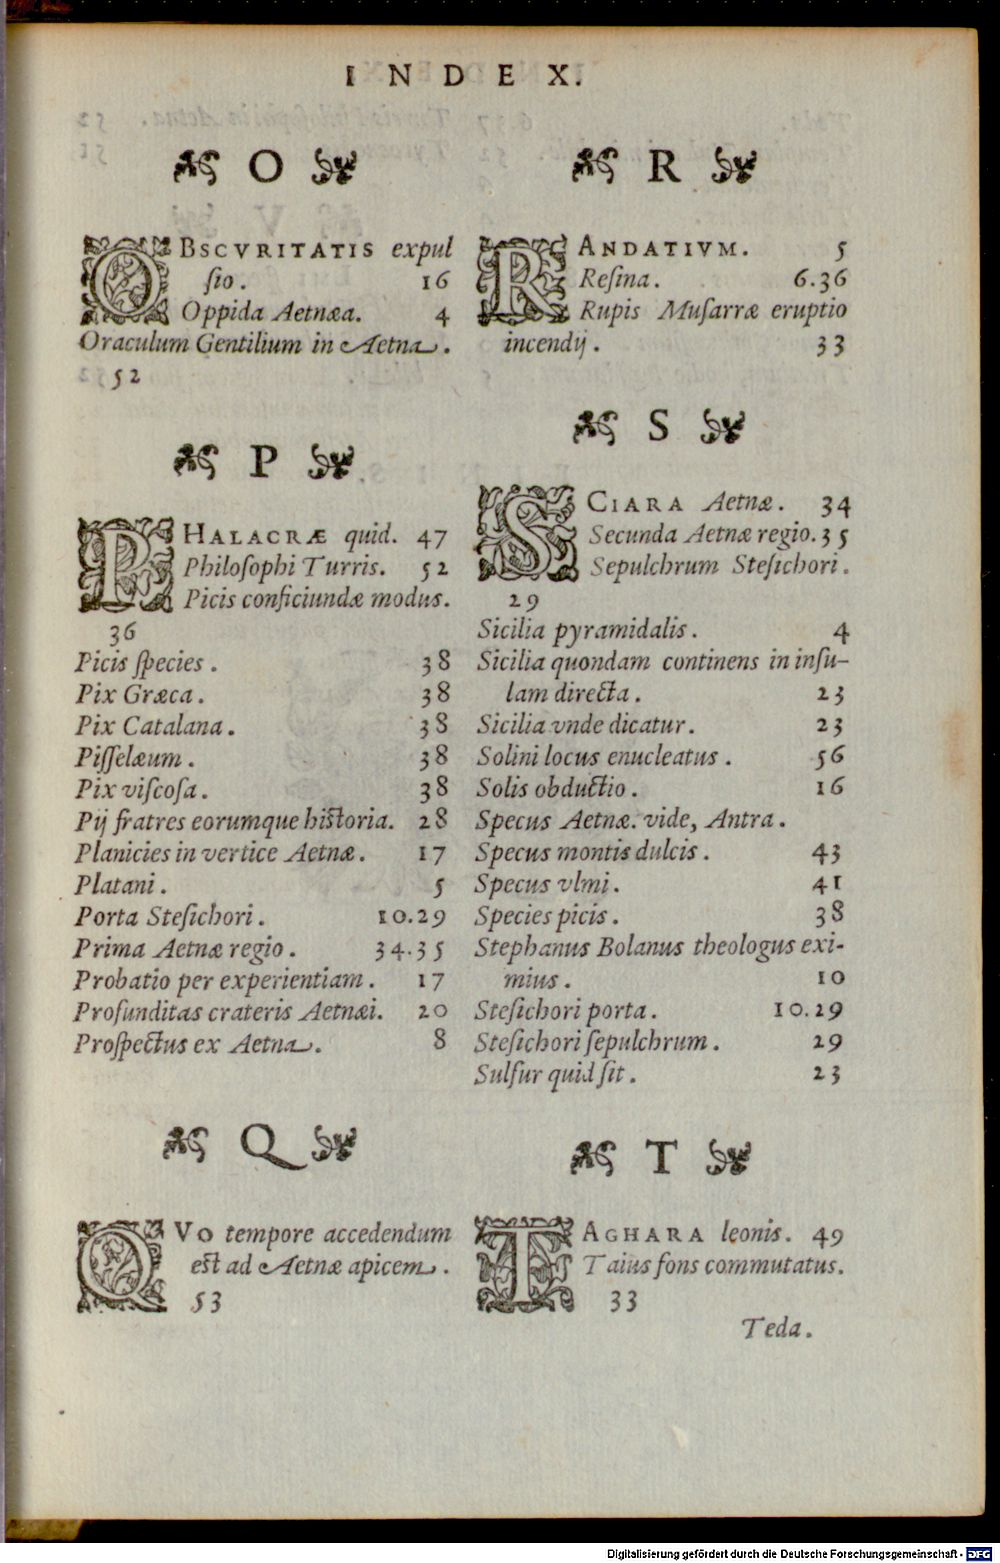 INDEX.
O
OBSCVRITATIS expul
sio. 16
Oppida Aetnæa. 4
Oraculum Gentilium in Aetna.
52
P
PHALACRÆ quid. 47
Philoſophi Turris. 52
Picis conficiundæ modus.
36
Picis ſpecies. 38
Pix Græca. 38
Pix Catalana. 38
Piſſelæum. 38
Pix viſcoſa. 38
Pij fratres eorumque hiſtoria. 28
Planicies in vertice Aetnæ. 17
Platani. 5
Porta Steſichori. 10.29
Prima Aetnæ regio. 34.35
Probatio per experientiam. 17
Profunditas crateris Aetnæi. 20
Proſpectus ex Aetna. 8
Q
QVO tempore accedendum
eſt ad Aetnæ apicem.
53
R
RANDATIVM. 5
Reſina. 6.36
Rupis Muſarræ eruptio
incendij. 33
S
SCIARA Aetnæ. 34
Secunda Aetnæ regio. 35
Sepulchrum Steſichori.
29
Sicilia pyramidalis. 4
Sicilia quondam continens in inſu-
lam directa. 23
Sicilia vnde dicatur. 23
Solini locus enucleatus. 56
Solis obductio. 16
Specus Aetnæ. vide, Antra.
Specus montis dulcis. 43
Specus vlmi. 41
Species picis. 38
Stephanus Bolanus theologus exi-
mius. 10
Steſichori porta. 10.29
Steſichori ſepulchrum. 29
Sulfur quid ſit. 23
T
TAGHARA leonis. 49
Taius fons commutatus.
33
Teda.
Digitalisierung gefördert durch die Deutsche Forschungsgemeinschaft - DFG